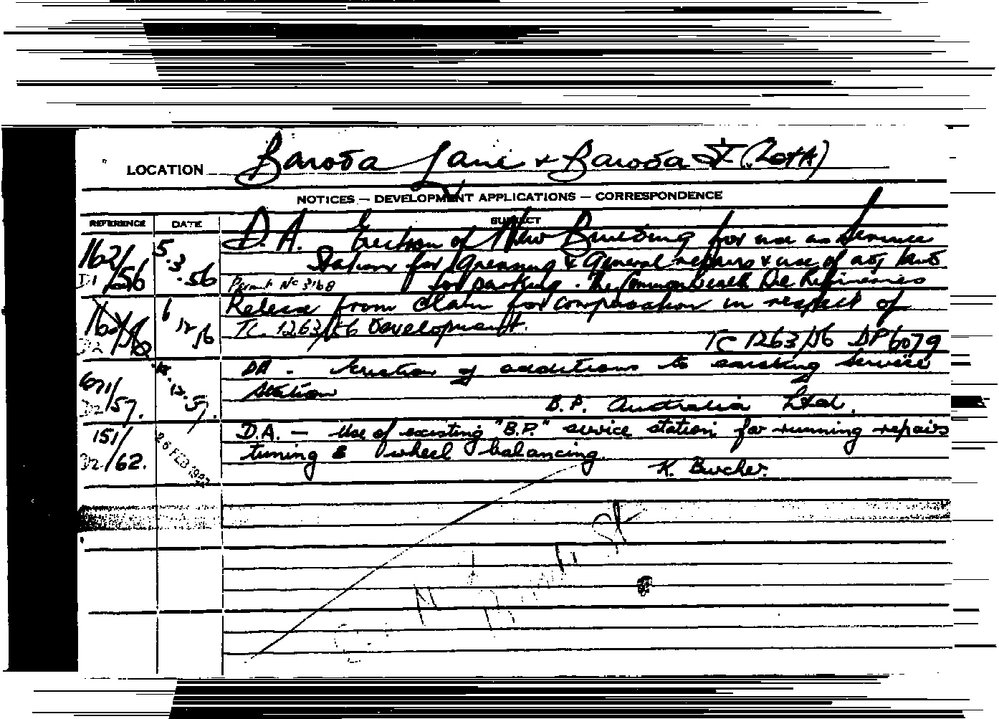 LOCATION Baroda Lane & Baroda St (Lot A)
NOTICES — DEVELOPMENT APPLICATIONS — CORRESPONDENCE
REFERENCE DATE SUBJECT
162/56 5.3.56 D.A. Erection of New Building for use as Service
Station for greasing & general repairs & use of adj land
Permit No 3168 for parking. The Commonwealth Oil Refineries
6 12 56 Release from claim for compensation in respect of
TC. 1263/56 Development.
TC 1263/56 DP6079
671/57. DA - Erection of additions to existing service
station
B.P. Australia Ltd.
151/62. 26 FEB 1962 D.A. — Use of existing "B.P." service station for running repairs
tuning & wheel balancing.
K. Bucher.